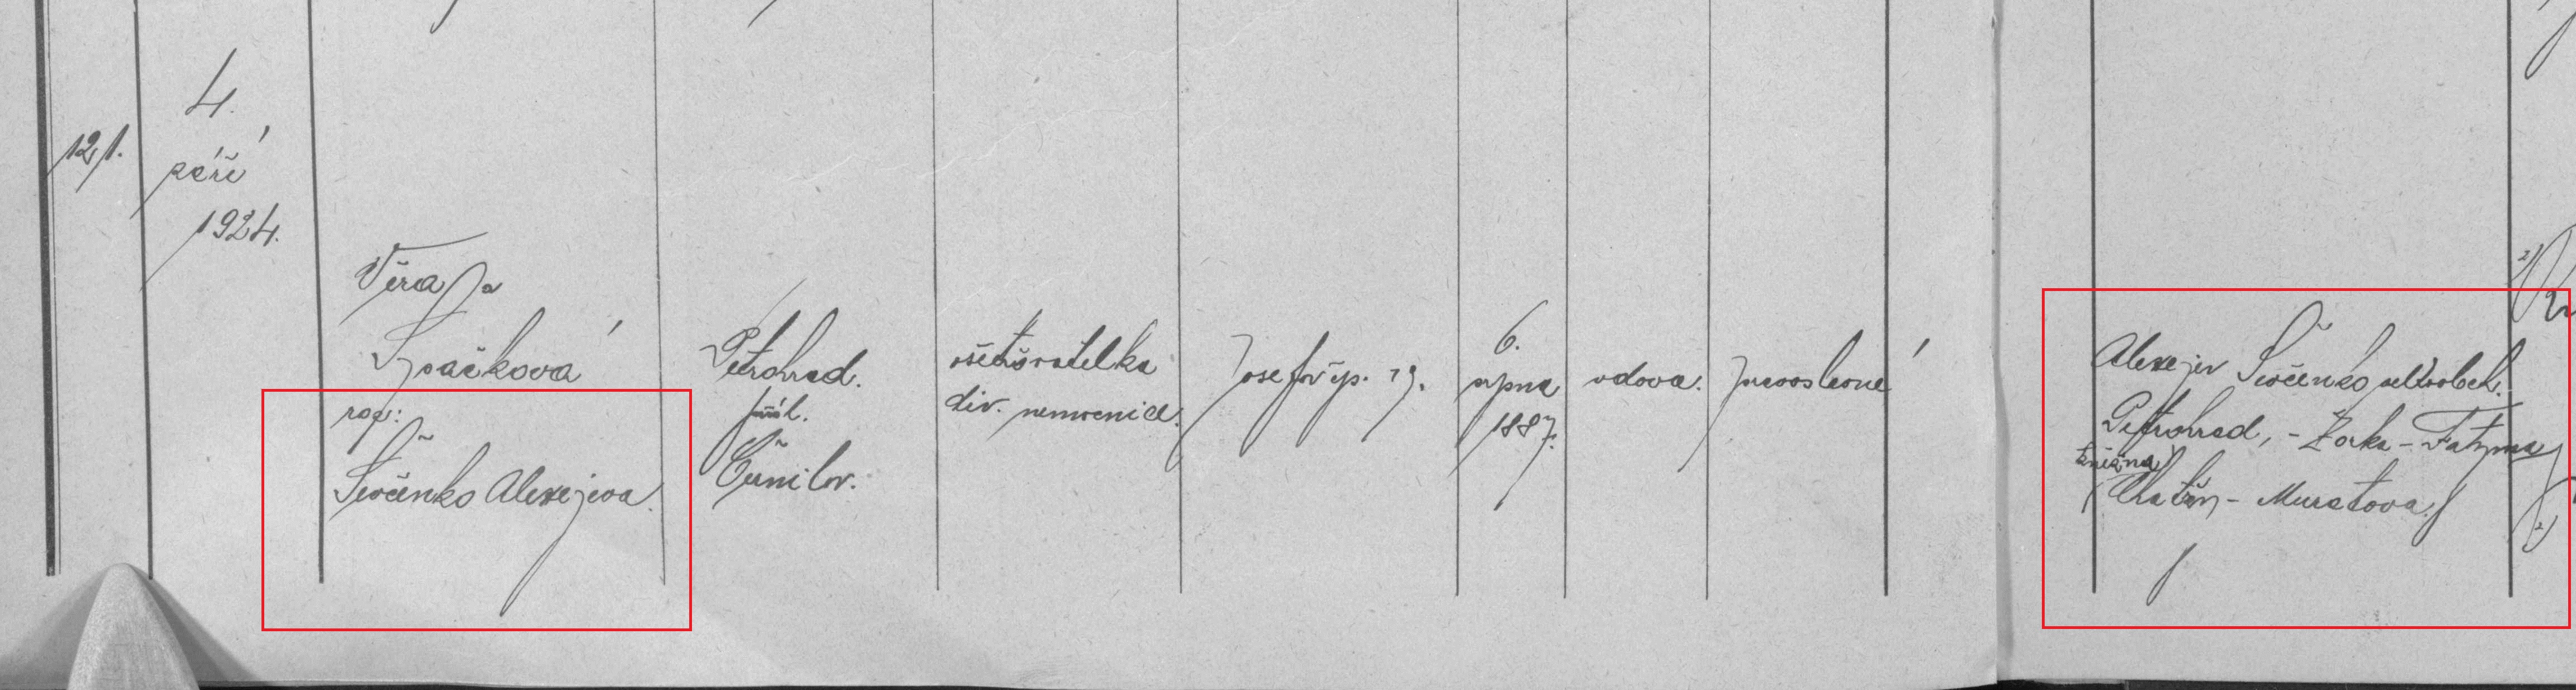 12/1.
4.
září
1924.
Věra
Špačková
roz:
Ševčenko Alexejeva.
Petrohrad.
přísl.
Černilov.
ošetřovatelka
div. nemocnice.
Josefov čp. 79.
6.
srpna
1887.
vdova.
pravoslavné
Alexejev Ševčenko
Petrohrad, - Zorka - Fatyma
kněžna
Muratova